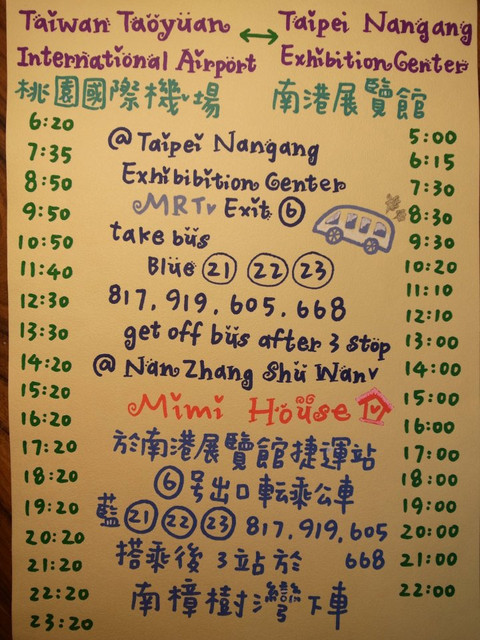 Taiwan Taoyuan
International Airport
Taipei Nangang
Exhibition Center
桃園國際機場
南港展覽館
6:20
7:35
8:50
9:50
10:50
11:40
12:30
13:30
14:20
15:20
16:20
17:20
18:20
19:20
20:20
21:20
22:20
23:20
@Taipei Nangang
Exhibibition Center
MRT Exit 6
take bus
Blue 21 22 23
817, 919, 605, 668
get off bus after 3 stop
@ Nan Zhang Shu Wan
Mimi House
於南港展覽館捷運站
6 号出口転乘公車
藍 21 22 23 817, 919, 605
搭乘後 3站於 668
南樟樹灣下車
5:00
6:15
7:30
8:30
9:30
10:20
11:10
12:10
13:00
14:00
15:00
16:00
17:00
18:00
19:00
20:00
21:00
22:00